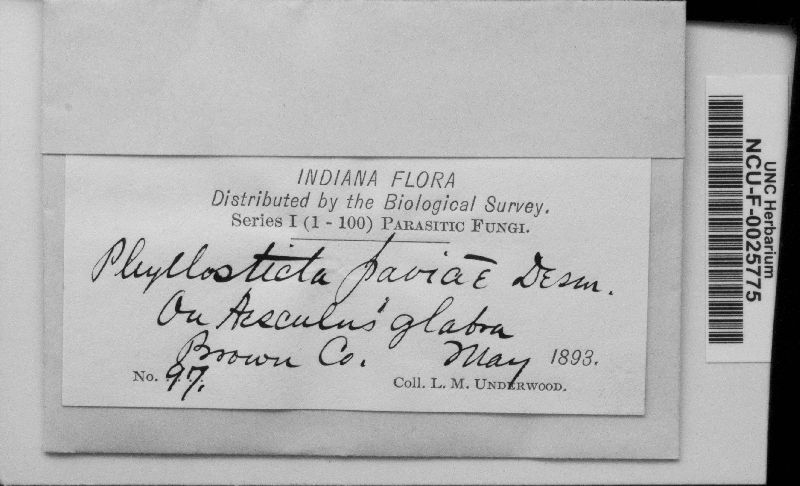 INDIANA FLORA
Distributed by the Biological Survey.
Series I (1 - 100) PARASITIC FUNGI.
Phyllosticta paviae Desm.
On Aesculus glabra
Brown Co. May 1893.
No. 97.
Coll. L. M. UNDERWOOD.
UNC Herbarium
NCU-F-0025775